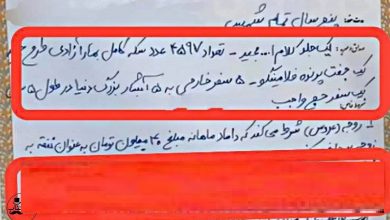 پنو سال تمام شمسی
یک جلد کلام ا... مجید - تعداد ۴۵۹۷ عدد سکه کامل بهار آزادی طرح
یک جفت پرنده فلامینگو - ۵ سفر خارجی به ۵ آبشار بزرگ دنیا در طول ۵
یک سفر حج واجب
۱- زوجه (عروس) شرط می کند که داماد ماهانه مبلغ ۴۰ میلیون تومان به عنوان نفقه به